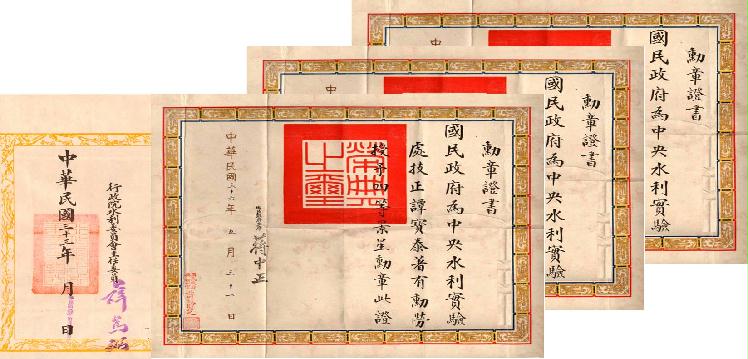 勳章證書
國民政府為中央水利實驗
處技正譚寶泰著有勳勞
授予四等景星勳章此證
榮典之璽
蔣中正
中華民國三十六年五月三十一日
勳章證書
國民政府為中央水利實驗
中
勳章證書
國民政府為中央水利實驗
中
行政院水利委員會主任委員
薛篤弼
中華民國三十三年 月 日